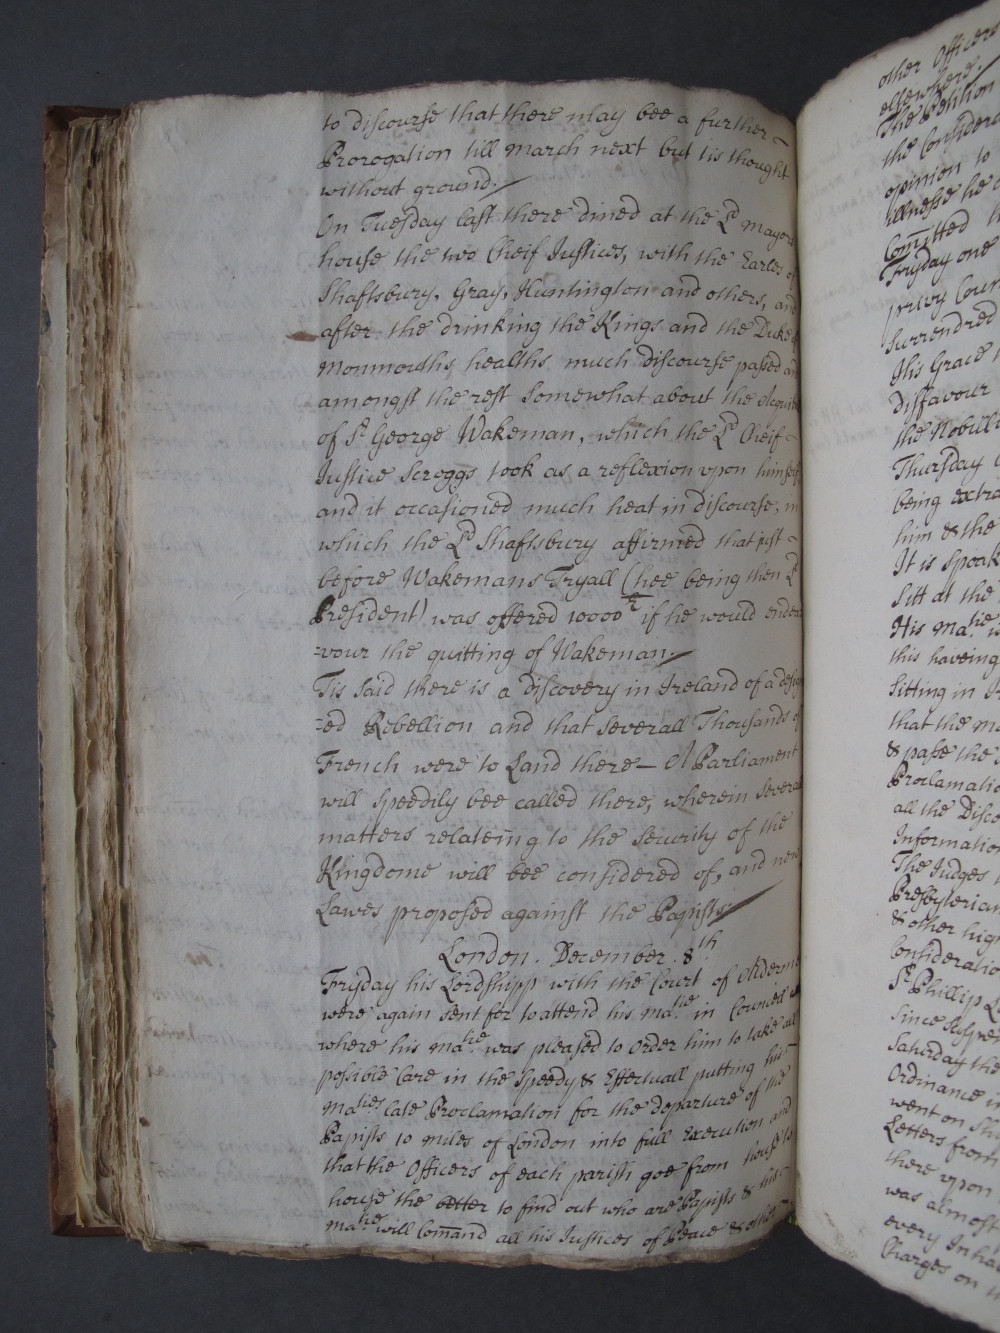 to discourse that there may bee a further
Prorogation till march next but tis thought
without ground.
On Tuesday last there dined at the Ld mayors
house the two Cheif Justices, with the Earles of
Shaftsbury, Gray, Huntington and others, and
after the drinking the Kings and the Duke of
Monmouths healths much discourse passed and
amongst the rest somewhat about the Acquit
of Sr George Wakeman, which the Ld Cheif
Justice Scroggs took as a reflexion upon himself,
and it occasioned much heat in discourse, in
which the Ld Shaftsbury affirmed that just
before Wakemans Tryall (hee being then Ld
President) was offered 10000 li if he would endea
=vour the quitting of Wakeman.
Tis said there is a discovery in Ireland of a design
=ed Rebellion and that severall Thousands of
French were to Land there — A Parliament
will speedily bee called there, wherein severall
matters relateing to the security of the
Kingdome will bee considered of, and new
Lawes proposed against the Papists.
London. December. 8th
Fryday his Lordshipp with the Court of Alderme
were again sent for to attend his Matie in Councell
where his Matie was pleased to order him to take all
possible Care in the speedy & Effectuall putting his
Maties late Proclamation for the departure of the
Papists 10 miles of London into full Execution and
that the Officers of each parish goe from house to
house the better to find out who are Papists & his
Matie will Comand all his Justices of Peace & other
other Officers
ellswhere.
The Petition
the Considera
opinion to
illnesse he
Comitted
Fryday one
privy Coun
surrendred
His Grace
disfavour
the Nobili
Thursday
being extra
him & the
It is speak
sitt at the
His Matie
this haveing
sitting in
that the
& passe the
Proclamatio
all the Disco
Information
The Judges
Presbyterian
& other high
Consideratio
Sr Phillip
since suspe
Saturday the
Ordinance
went on
Letters from
there upon
was almost
every Inha
Charges on